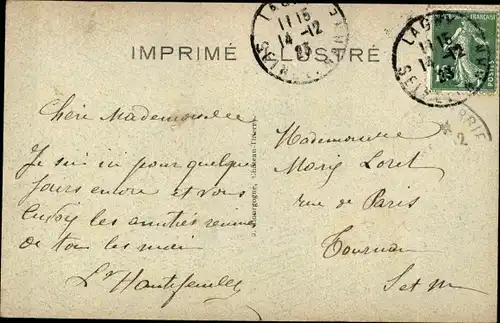 IMPRIMÉ ILLUSTRÉ
LAG
11 15
14-12
23
LAG
11 15
14-12
23
FRANÇAISE
POSTES
BRIE
* 2
Chère Mademoiselle
Je suis ici pour quelques
jours encore et vous
envoy les amitiés réunies
de tous les miens
Lr Hautefeuille
Bourgogne, Château-Thierry
Mademoiselle
Marie Loret
rue de Paris
Tournan
S et M